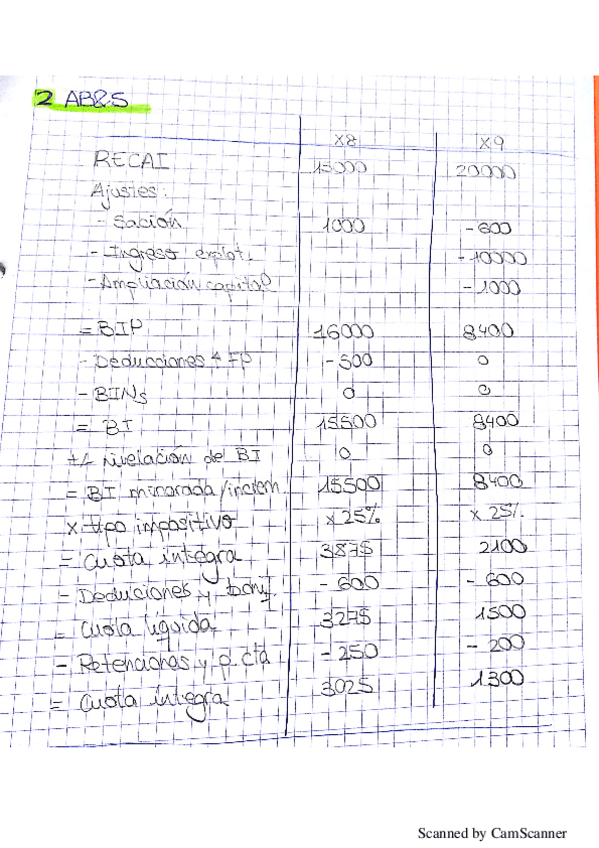 2 AB&S
X8 X9
RECAI 15000 20000
Ajustes:
- Sación 1000 - 600
- Ingreso explot. - 10000
- Ampliación capital - 1000
= BIP 16000 8400
- Deducciones 4 FP - 500 0
- BINs 0 0
= BI 15500 8400
+/- nivelación de BI 0 0
= BI minorada/increm. 15500 8400
x tipo impositivo x 25% x 25%
= Cuota íntegra 3875 2100
- Deducciones y bonif. - 600 - 600
= Cuota líquida 3275 1500
- Retenciones y p. cta - 250 - 200
= Cuota íntegra 3025 1300
Scanned by CamScanner